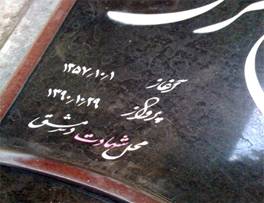 آغاز ۱۳۵۷/۱۰/۱
پرواز ۱۳۹۰/۱/۲۹
محل شهادت دمشق